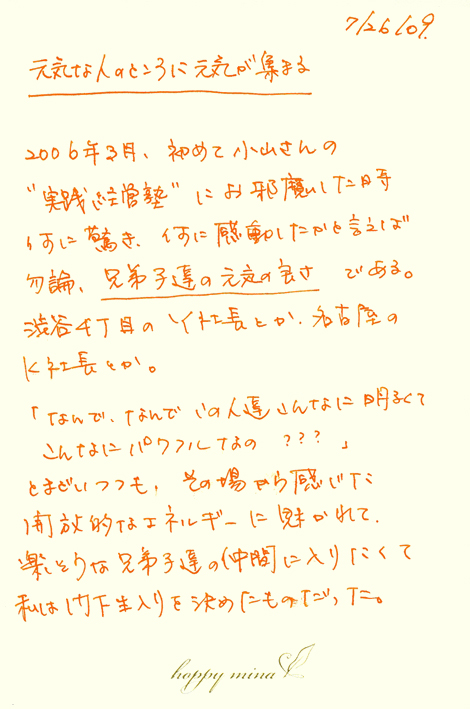 7/26/09.
元気な人のところに元気が集まる
2006年3月、初めて小山さんの
"実践経営塾" にお邪魔した時
何に驚き、何に感動したかと言えば
勿論、兄弟子達の元気の良さ である。
渋谷4丁目のY社長とか、名古屋の
K社長とか。
「なんで、なんで この人達こんなに明るくて
こんなにパワフルなの ???」
とまどいつつも、その場から感じた
開放的なエネルギーに魅かれて、
楽しそうな兄弟子達の仲間に入りたくて
私は門下生入りを決めたものだった。
happy mina